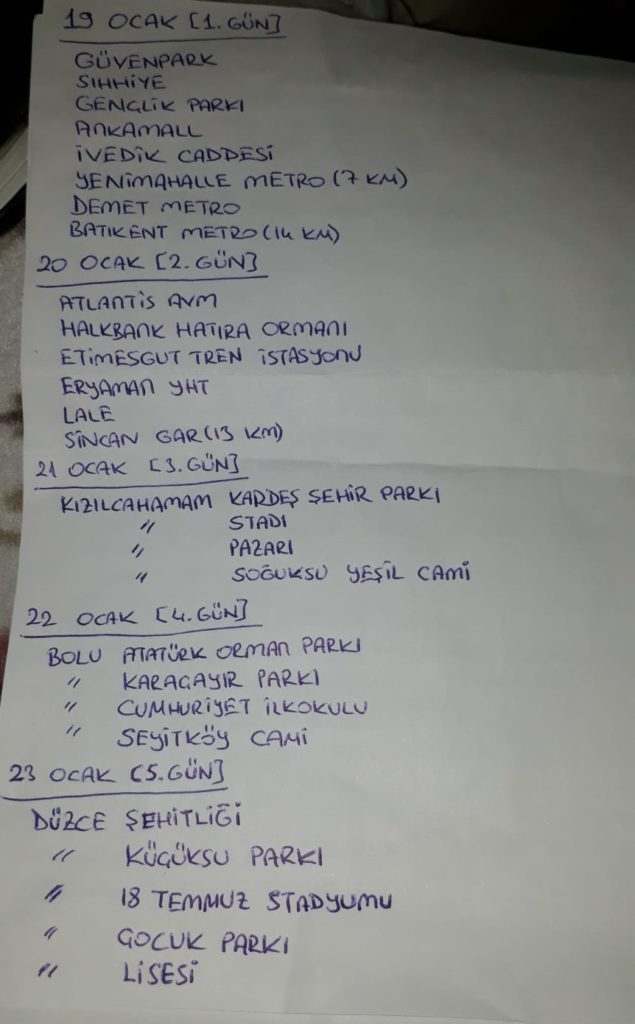 19 OCAK [1.GÜN]
GÜVENPARK
SIHHİYE
GENÇLİK PARKI
ANKAMALL
İVEDİK CADDESİ
YENİMAHALLE METRO (7 KM)
DEMET METRO
BATIKENT METRO (14 KM)
20 OCAK [2.GÜN]
ATLANTİS AVM
HALKBANK HATIRA ORMANI
ETİMESGUT TREN İSTASYONU
ERYAMAN YHT
LALE
SİNCAN GAR (13 KM)
21 OCAK [3.GÜN]
KIZILCAHAMAM KARDEŞ ŞEHİR PARKI
" STADI
" PAZARI
" SOĞUKSU YEŞİL CAMİ
22 OCAK [4.GÜN]
BOLU ATATÜRK ORMAN PARKI
" KARAÇAYIR PARKI
" CUMHURİYET İLKOKULU
" SEYİTKÖY CAMİ
23 OCAK [5.GÜN]
DÜZCE ŞEHİTLİĞİ
" KÜÇÜKSU PARKI
" 18 TEMMUZ STADYUMU
" ÇOCUK PARKI
" LİSESİ